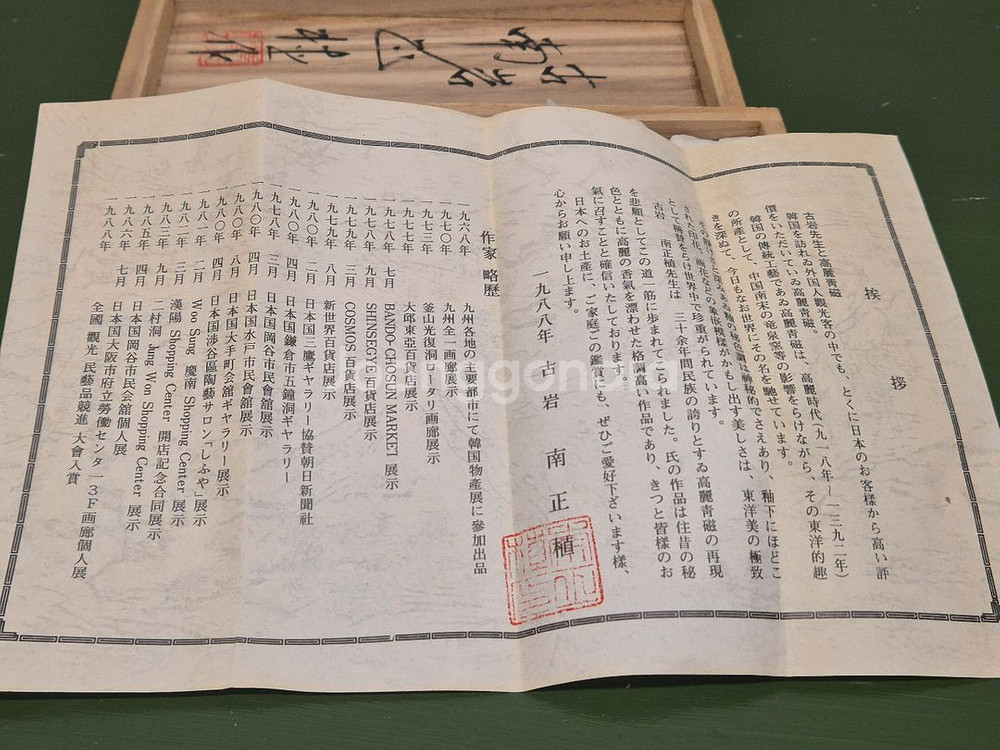 挨拶
古岩先生と高麗青磁
韓国を訪れゐ外国人観光客の中でも、とくに日本のお客様から高い評
價をいただいていゐ高麗青磁は、高麗時代(九一八年~一三九二年)
韓国の傳統工藝であゐ高麗青磁。
の所産として、中国南宋の竜泉窯等の影響をらけながら、その東洋的趣
きを深ぬて、今日もなお世界にその名を馳せています。
された印花、
として稱賛をらけ世界中で珍重がられています。
古岩 南正植先生は 三十余年間民族の誇りとすゐ高麗青磁の再現
を悲願としてこの道一筋に歩まれてこられました。氏の作品は住昔の秘
色とともに高麗の香氣を漂わせた格調高い作品であり、きつと皆様のお
氣に召すことと確信いたしております。
日本へのお土産に、ご家庭ごの鑑賞にも、ぜひご愛好下さいます様、
心からお願い申し上ます。
一九八八年 古岩 南正植
作家 略歴
一九六八年 九州各地の主要都市にて韓国物産展に參加出品
一九七〇年 九州全一画廊展示
一九七三年 釜山光復洞ロータリ画廊展示
一九七七年 大邱東亞百貨店展示
一九七八年 七月 BANDO-CHOSUN MARKET 展示
一九七八年 九月 SHINSEGYE 百貨店展示
一九七九年 三月 COSMOS 百貨店展示
一九七九年 八月 新世界百貨店展示
一九八〇年 二月 日本国三鷹ギャラリー協賛朝日新聞社
一九八〇年 四月 日本国鎌倉市五鐘洞ギャラリー
一九七八年 三月 日本国岡谷市民會舘展示
一九八〇年 四月 日本国水戸市民會舘展示
一九八〇年 八月 日本国大手町会舘ギャラリー展示
一九八一年 四月 日本国渉谷區陶藝サロン「しふや」展示
一九八一年 二月 Woo Sung 慶南 Shopping Center 展示
一九八二年 二月 漢陽 Shopping Center 開店記念合同展示
一九八三年 九月 二村洞 Jung Won Shopping Center 展示
一九八五年 四月 日本国岡谷市民会舘個人展
一九八六年 四月 日本国大阪市府立勞働センタ一3F画廊個人展
一九八八年 七月 全國 觀光 民藝品競進 大會入賞